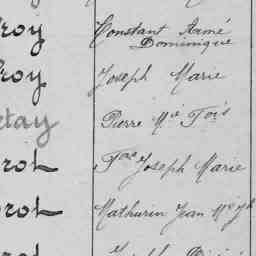 roy Constant Aimé
Dominique
roy Joseph Marie
tay Pierre Mie Fois
rot Fois Joseph Marie
rot Mathurin Jean Mie Jh
rot Joseph